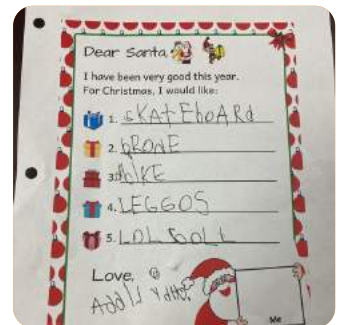 Dear Santa,
I have been very good this year.
For Christmas, I would like:
1. sKAtEboARd
2. DRONE
3. bIKE
4. LEGGOS
5. LOL DOLL
Love,
Me